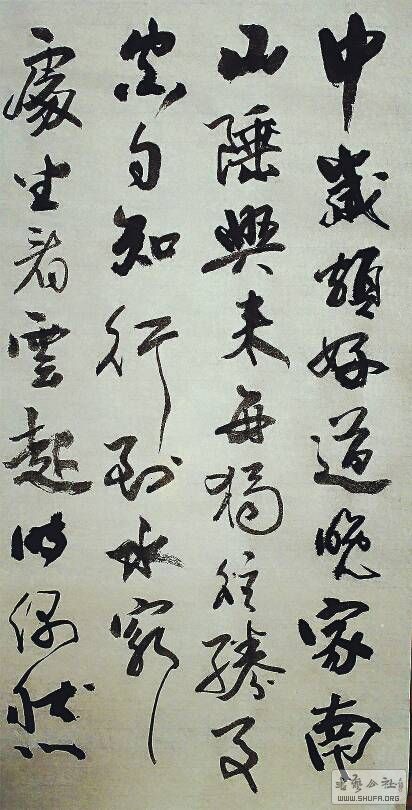 中歲頗好道晚家南
山陲興来每獨往勝事
空自知行到水窮
處坐看雲起時偶然
书藝公社
WWW.SHUFA.ORG